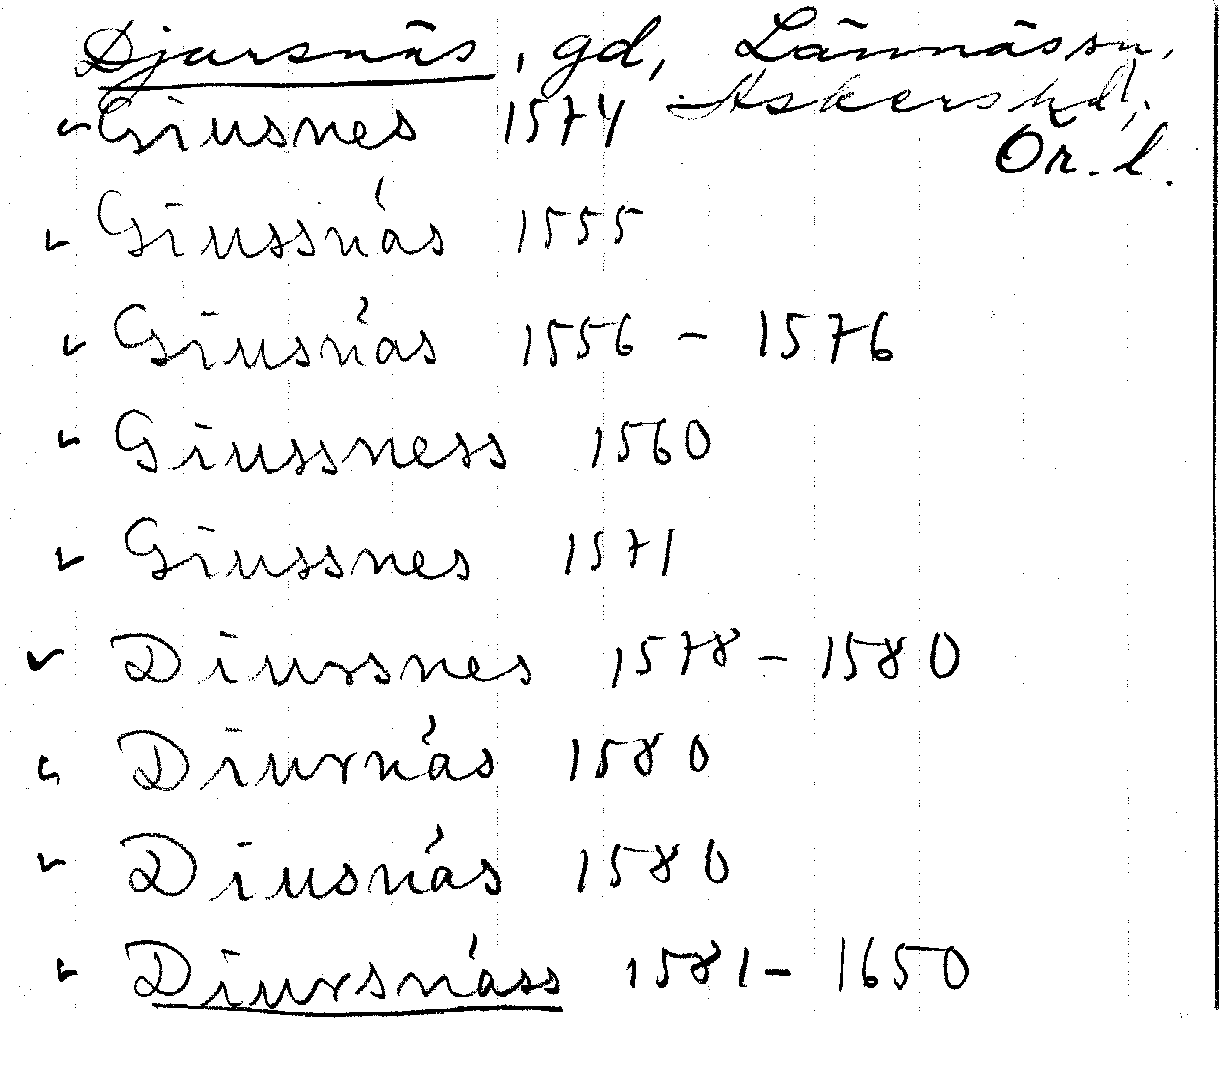 Djursnäs, gd, Lännäs sn,
Askers hd,
Ör. l.
Giusnes 1574
Giussnás 1555
Giusnás 1556 - 1576
Giussness 1560
Giussnes 1571
Diursnes 1578 - 1580
Diurnás 1580
Diusnás 1580
Diursnáss 1581 - 1650